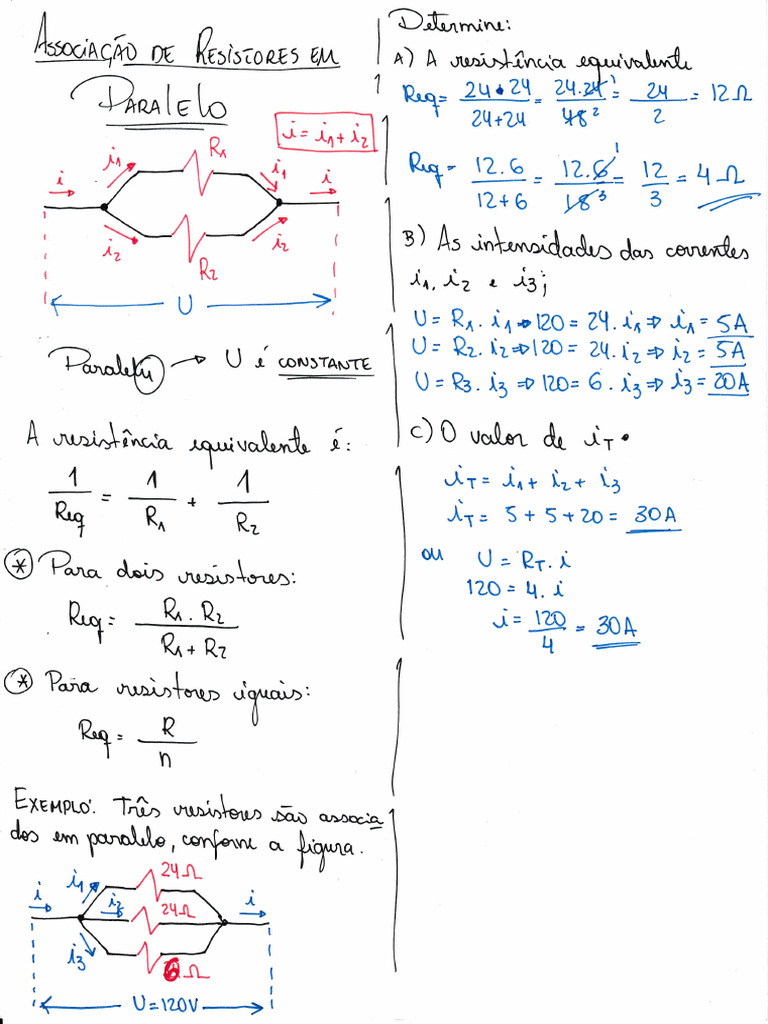 ASSOCIAÇÃO DE RESISTORES EM
PARALELO
i = i1 + i2
R1
i i1 i1 i
i2 i2
R2
U
Paralelu → U é CONSTANTE
A resistência equivalente é:
1/Req = 1/R1 + 1/R2
* Para dois resistores:
Req = R1 . R2 / R1 + R2
* Para resistores iguais:
Req = R / n
EXEMPLO: Três resistores são associa
dos em paralelo, conforme a figura.
24Ω
i i1 i2 24Ω i
i3 6Ω
U = 120V
Determine:
A) A resistência equivalente
Req = 24 . 24 / 24 + 24 = 24 . 24 1 / 48 2 = 24 / 2 = 12 Ω
Req = 12 . 6 / 12 + 6 = 12 . 6 1 / 18 3 = 12 / 3 = 4 Ω
B) As intensidades das correntes
i1, i2 e i3;
U = R1 . i1 → 120 = 24 . i1 ⇒ i1 = 5A
U = R2 . i2 ⇒ 120 = 24 . i2 ⇒ i2 = 5A
U = R3 . i3 ⇒ 120 = 6 . i3 ⇒ i3 = 20A
C) O valor de iT.
iT = i1 + i2 + i3
iT = 5 + 5 + 20 = 30A
ou U = RT . i
120 = 4 . i
i = 120 / 4 = 30A